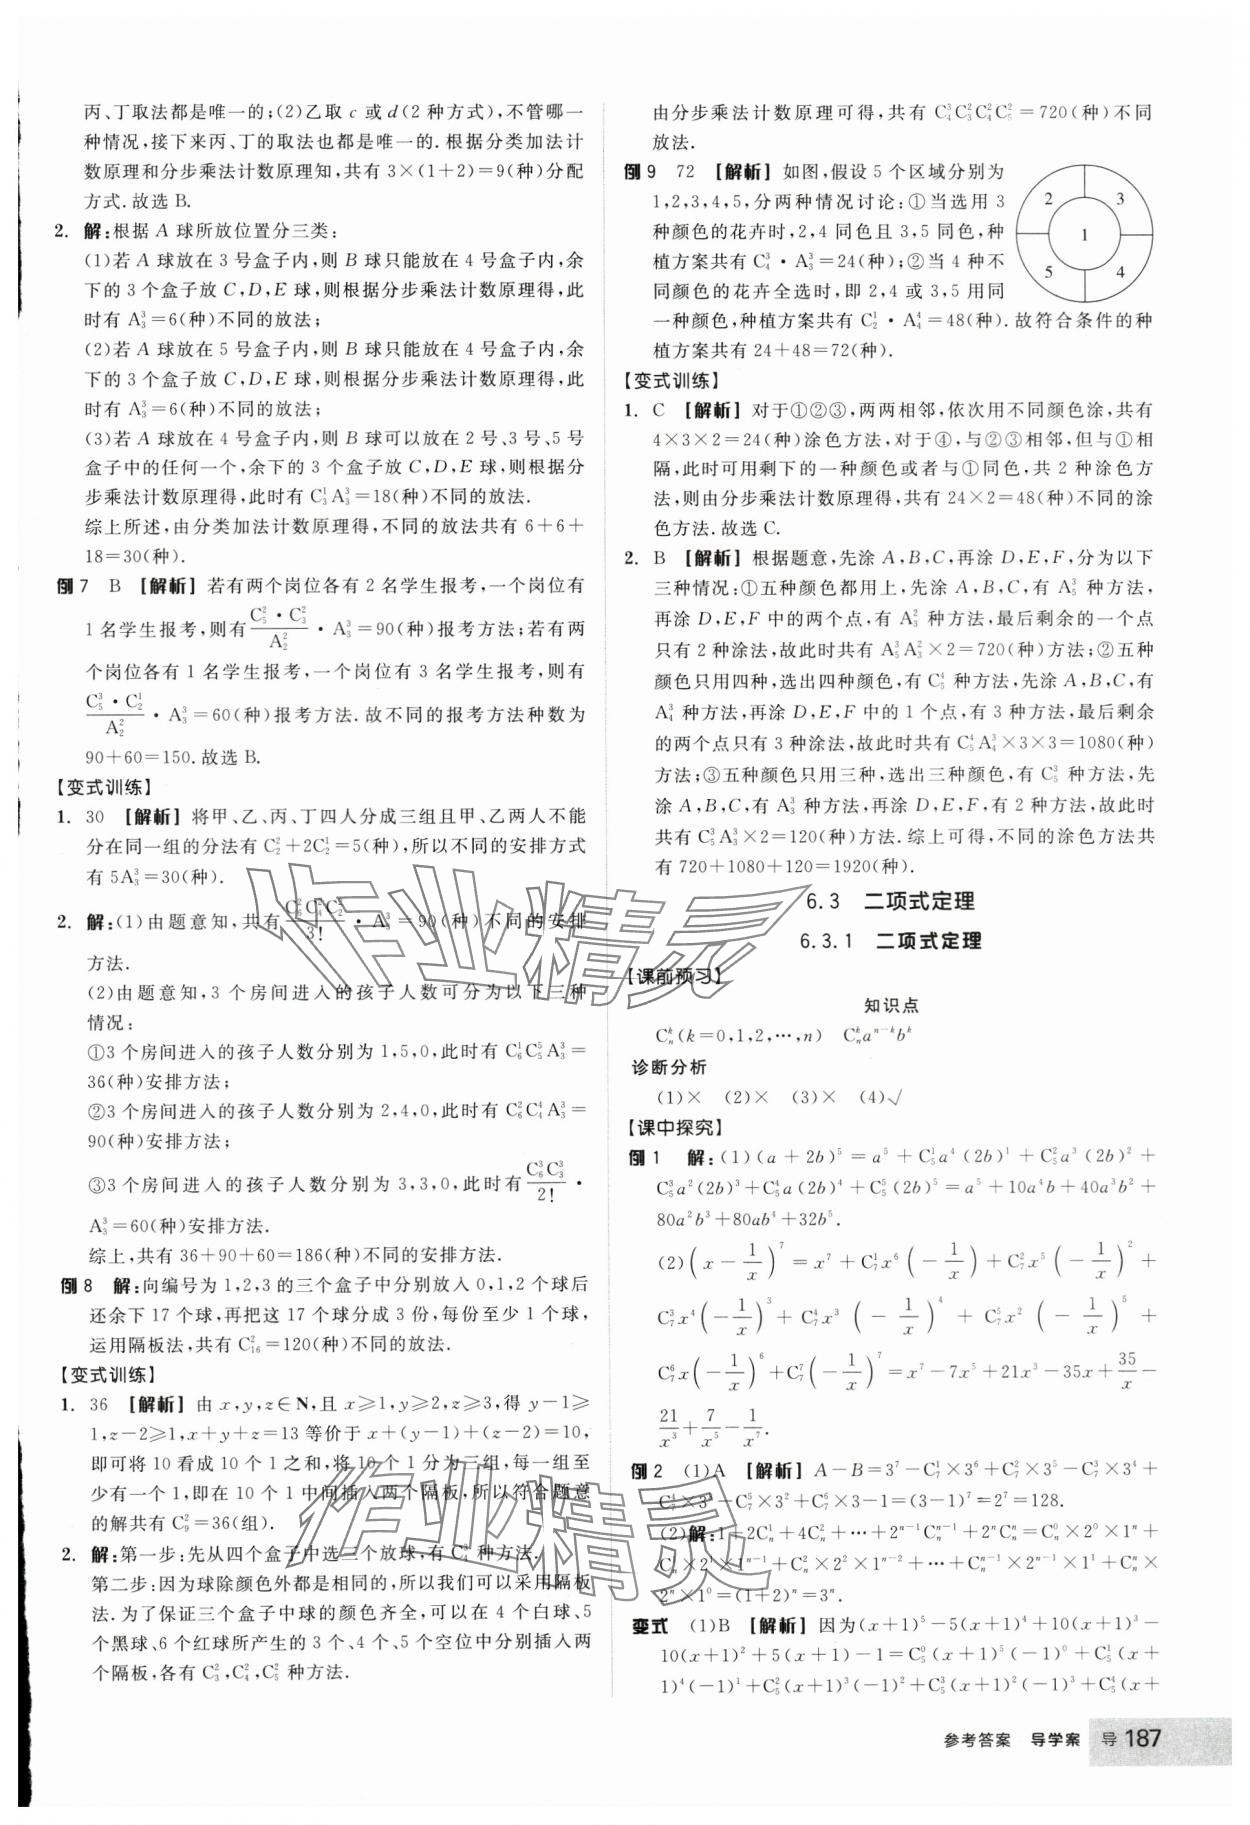 丙、丁取法都是唯一的;(2)乙取 c 或 d(2 种方式),不管哪一
种情况,接下来丙、丁的取法也都是唯一的.根据分类加法计
数原理和分步乘法计数原理知,共有 3×(1+2)=9(种)分配
方式.故选 B.
2. 解:根据 A 球所放位置分三类:
(1)若 A 球放在 3 号盒子内,则 B 球只能放在 4 号盒子内,余
下的 3 个盒子放 C,D,E 球,则根据分步乘法计数原理得,此
时有 A₃³=6(种)不同的放法;
(2)若 A 球放在 5 号盒子内,则 B 球只能放在 4 号盒子内,余
下的 3 个盒子放 C,D,E 球,则根据分步乘法计数原理得,此
时有 A₃³=6(种)不同的放法;
(3)若 A 球放在 4 号盒子内,则 B 球可以放在 2 号、3 号、5 号
盒子中的任何一个,余下的 3 个盒子放 C,D,E 球,则根据分
步乘法计数原理得,此时有 C₃¹A₃³=18(种)不同的放法.
综上所述,由分类加法计数原理得,不同的放法共有 6+6+
18=30(种).
例 7 B 【解析】 若有两个岗位各有 2 名学生报考,一个岗位有
1 名学生报考,则有 (C₅²·C₃²)/A₂² · A₃³=90(种)报考方法;若有两
个岗位各有 1 名学生报考,一个岗位有 3 名学生报考,则有
(C₅³·C₂¹)/A₂² · A₃³=60(种)报考方法.故不同的报考方法种数为
90+60=150.故选 B.
【变式训练】
1. 30 【解析】 将甲、乙、丙、丁四人分成三组且甲、乙两人不能
分在同一组的分法有 C₂²+2C₂¹=5(种),所以不同的安排方式
有 5A₃³=30(种).
2. 解:(1)由题意知,共有 (C₆²C₄²C₂²)/3! · A₃³=90(种)不同的安排
方法.
(2)由题意知,3 个房间进入的孩子人数可分为以下三种
情况:
①3 个房间进入的孩子人数分别为 1,5,0,此时有 C₆¹C₅⁵A₃³=
36(种)安排方法;
②3 个房间进入的孩子人数分别为 2,4,0,此时有 C₆²C₄⁴A₃³=
90(种)安排方法;
③3 个房间进入的孩子人数分别为 3,3,0,此时有 (C₆³C₃³)/2! ·
A₃³=60(种)安排方法.
综上,共有 36+90+60=186(种)不同的安排方法.
例 8 解:向编号为 1,2,3 的三个盒子中分别放入 0,1,2 个球后
还余下 17 个球,再把这 17 个球分成 3 份,每份至少 1 个球,
运用隔板法,共有 C₁₆²=120(种)不同的放法.
【变式训练】
1. 36 【解析】 由 x,y,z∈N,且 x≥1,y≥2,z≥3,得 y−1≥
1,z−2≥1,x+y+z=13 等价于 x+(y−1)+(z−2)=10,
即可将 10 看成 10 个 1 之和,将 10 个 1 分为三组,每一组至
少有一个 1,即在 10 个 1 中间插入两个隔板,所以符合题意
的解共有 C₉²=36(组).
2. 解:第一步:先从四个盒子中选三个放球,有 C₄³ 种方法.
第二步:因为球除颜色外都是相同的,所以我们可以采用隔板
法.为了保证三个盒子中球的颜色齐全,可以在 4 个白球、5
个黑球、6 个红球所产生的 3 个、4 个、5 个空位中分别插入两
个隔板,各有 C₃²,C₄²,C₅² 种方法.
由分步乘法计数原理可得,共有 C₄³C₃²C₄²C₅²=720(种)不同
放法.
例 9 72 【解析】 如图,假设 5 个区域分别为
1,2,3,4,5,分两种情况讨论:①当选用 3
种颜色的花卉时,2,4 同色且 3,5 同色,种
植方案共有 C₄³·A₃³=24(种);②当 4 种不
同颜色的花卉全选时,即 2,4 或 3,5 用同
一种颜色,种植方案共有 C₂¹·A₄⁴=48(种).故符合条件的种
植方案共有 24+48=72(种).
2 3
1
5 4
【变式训练】
1. C 【解析】 对于①②③,两两相邻,依次用不同颜色涂,共有
4×3×2=24(种)涂色方法,对于④,与②③相邻,但与①相
隔,此时可用剩下的一种颜色或者与①同色,共 2 种涂色方
法,则由分步乘法计数原理得,共有 24×2=48(种)不同的涂
色方法.故选 C.
2. B 【解析】 根据题意,先涂 A,B,C,再涂 D,E,F,分为以下
三种情况:①五种颜色都用上,先涂 A,B,C,有 A₅³ 种方法,
再涂 D,E,F 中的两个点,有 A₃² 种方法,最后剩余的一个点
只有 2 种涂法,故此时共有 A₅³A₃²×2=720(种)方法;②五种
颜色只用四种,选出四种颜色,有 C₅⁴ 种方法,先涂 A,B,C,有
A₄³ 种方法,再涂 D,E,F 中的 1 个点,有 3 种方法,最后剩余
的两个点只有 3 种涂法,故此时共有 C₅⁴A₄³×3×3=1080(种)
方法;③五种颜色只用三种,选出三种颜色,有 C₅³ 种方法,先
涂 A,B,C,有 A₃³ 种方法,再涂 D,E,F,有 2 种方法,故此时
共有 C₅³A₃³×2=120(种)方法.综上可得,不同的涂色方法共
有 720+1080+120=1920(种).
6.3 二项式定理
6.3.1 二项式定理
【课前预习】
知识点
Cₙᵏ(k=0,1,2,…,n) Cₙᵏaⁿ⁻ᵏbᵏ
诊断分析
(1)× (2)× (3)× (4)√
【课中探究】
例 1 解:(1)(a+2b)⁵=a⁵+C₅¹a⁴(2b)¹+C₅²a³(2b)²+
C₅³a²(2b)³+C₅⁴a(2b)⁴+C₅⁵(2b)⁵=a⁵+10a⁴b+40a³b²+
80a²b³+80ab⁴+32b⁵.
(2)(x−1/x)⁷=x⁷+C₇¹x⁶(−1/x)+C₇²x⁵(−1/x)²+
C₇³x⁴(−1/x)³+C₇⁴x³(−1/x)⁴+C₇⁵x²(−1/x)⁵+
C₇⁶x(−1/x)⁶+C₇⁷(−1/x)⁷=x⁷−7x⁵+21x³−35x+35/x−
21/x³+7/x⁵−1/x⁷.
例 2 (1)A 【解析】 A−B=3⁷−C₇¹×3⁶+C₇²×3⁵−C₇³×3⁴+
C₇⁴×3³−C₇⁵×3²+C₇⁶×3−1=(3−1)⁷=2⁷=128.
(2)解:1+2Cₙ¹+4Cₙ²+…+2ⁿ⁻¹Cₙⁿ⁻¹+2ⁿCₙⁿ=Cₙ⁰×2⁰×1ⁿ+
Cₙ¹×2¹×1ⁿ⁻¹+Cₙ²×2²×1ⁿ⁻²+…+Cₙⁿ⁻¹×2ⁿ⁻¹×1¹+Cₙⁿ×
2ⁿ×1⁰=(1+2)ⁿ=3ⁿ.
变式 (1)B 【解析】 因为(x+1)⁵−5(x+1)⁴+10(x+1)³−
10(x+1)²+5(x+1)−1=C₅⁰(x+1)⁵(−1)⁰+C₅¹(x+
1)⁴(−1)¹+C₅²(x+1)³(−1)²+C₅³(x+1)²(−1)³+C₅⁴(x+
参考答案 导学案 导 187
作业精灵
作业精灵